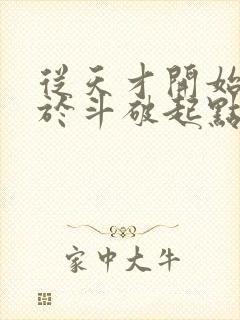 從天才開始
於斗破起點
家中大牛